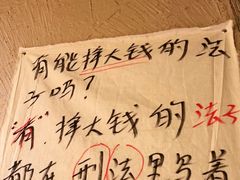 有能挣大钱的法
子吗？
"有"挣大钱的法子
都在刑法里写着